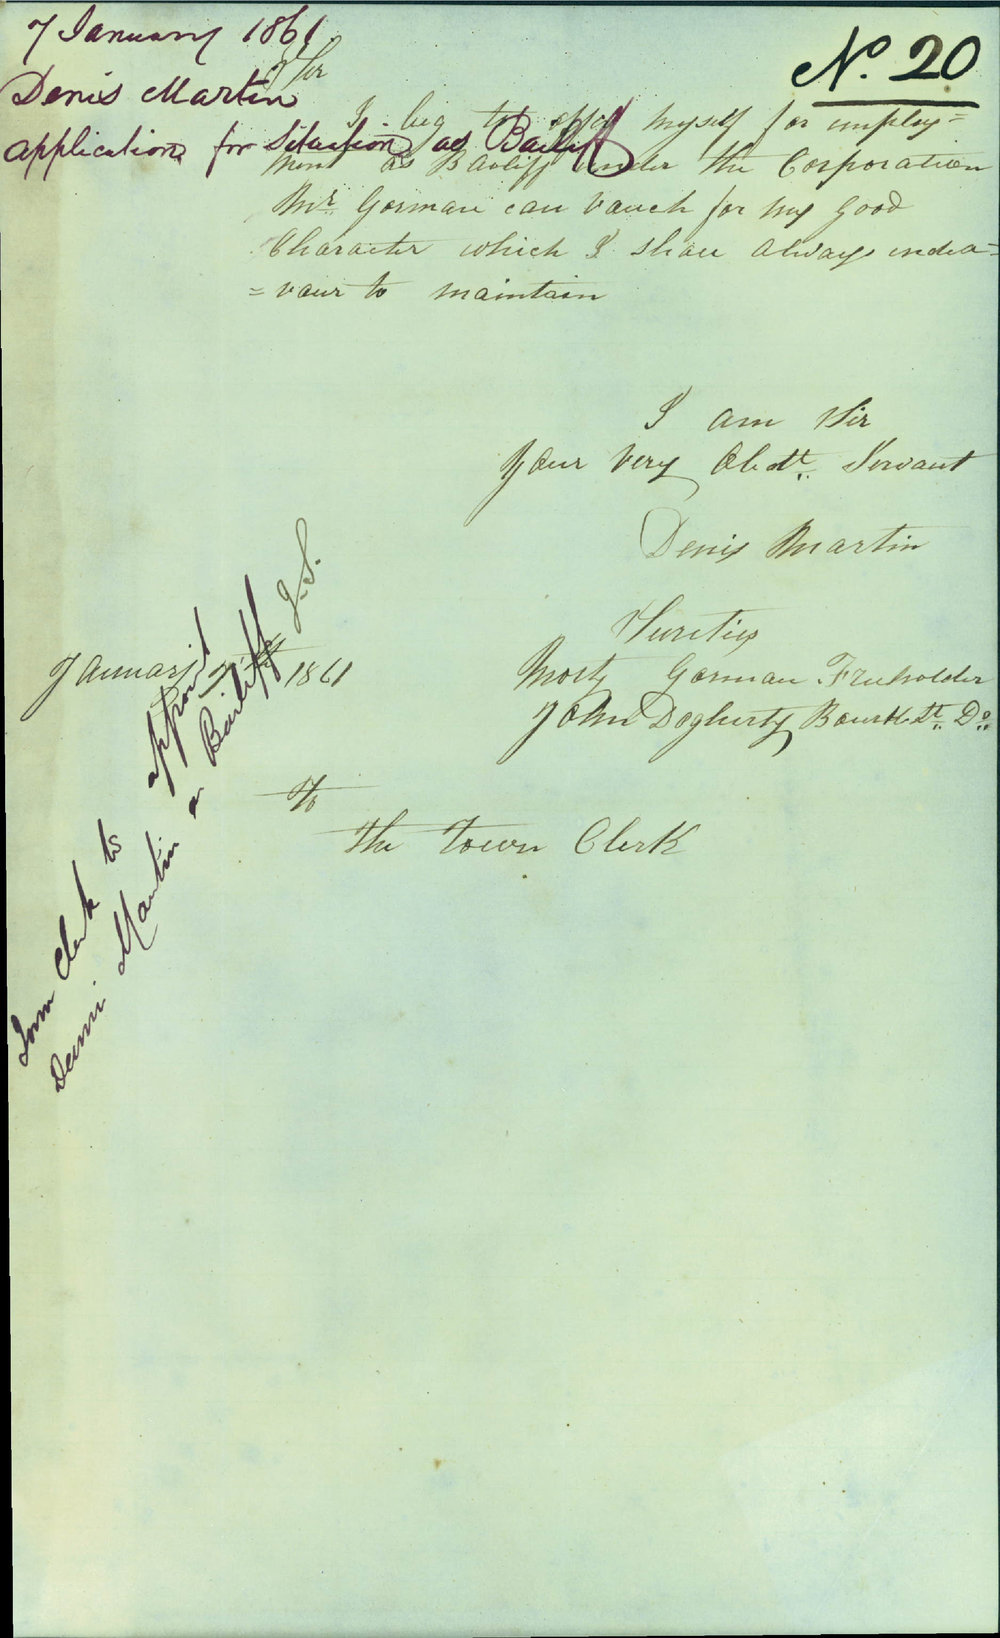 7 January 1861
Denis Martin
application for Situation as Bailiff
No. 20
Sir
I beg to offer myself for employ=
ment as Bailiff under the Corporation
Mr. Gorman can vouch for my good
Character which I shall always endea=
=vour to maintain
I am Sir
your very Obdt. Servant
Denis Martin
Sureties
Morty Gorman Freeholder
John Dogherty Bourk St. Do.
January 7th 1861
To
The Town Clerk
Town Clerk to appoint
Denis Martin a Bailiff J.S.